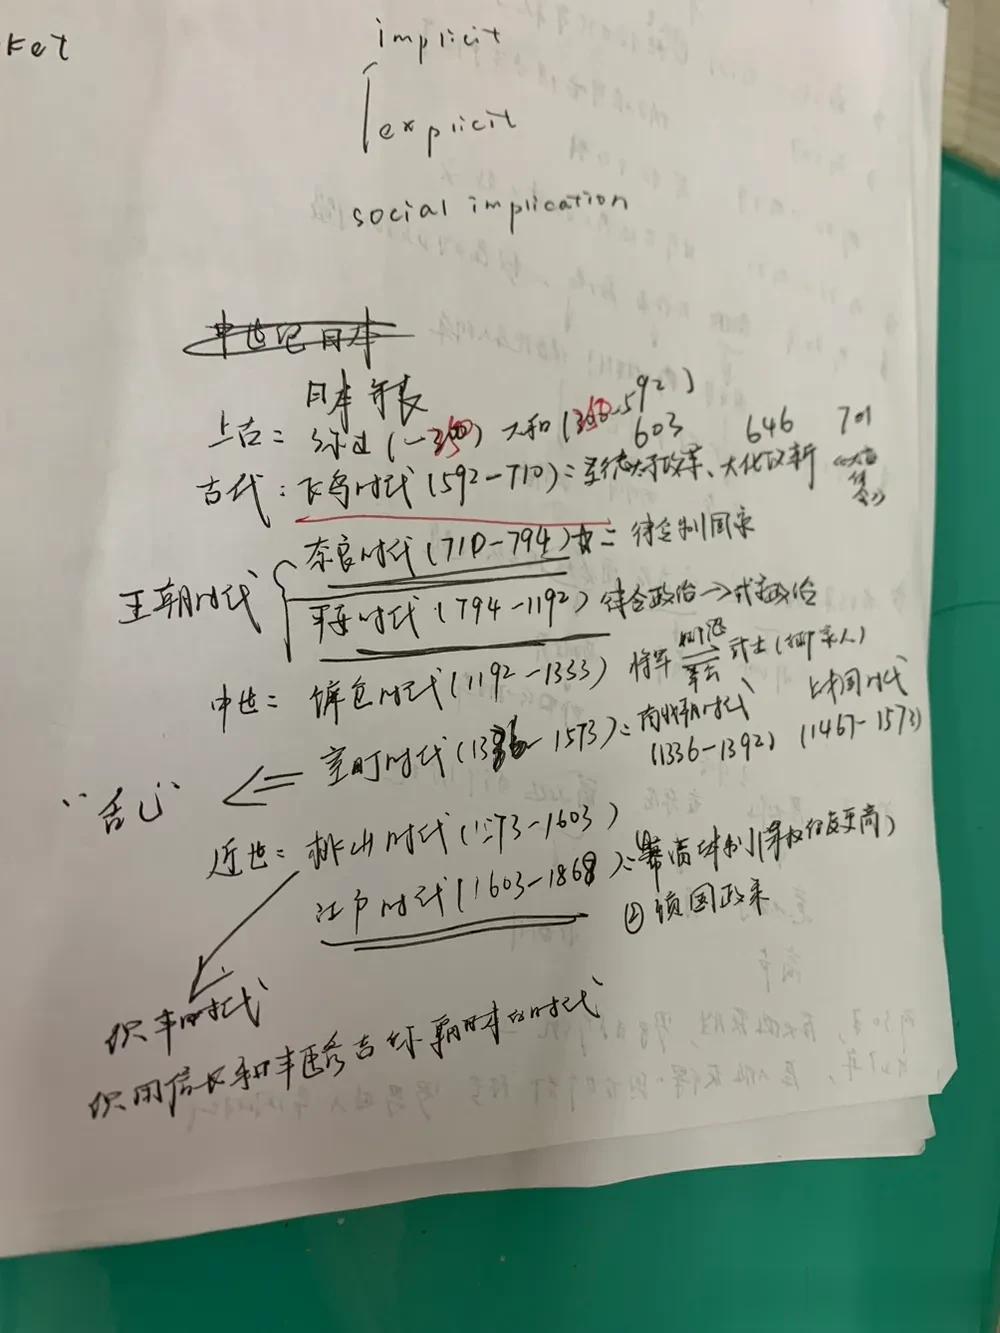 ket
implicit
explicit
social implication
中世纪日本
日本年表
上古：绳文(-300) 大和(300-592)
603 646 701
古代：飞鸟时代(592-710)：圣德太子改革、大化改新 《大宝律令》
王朝时代
奈良时代(710-794)☆：律令制国家
平安时代(794-1192) 律令政治→贵族政治
中世：镰仓时代(1192-1333) 将军 武士(御家人)
室町时代(1336-1573)：南北朝时代 战国时代
(1336-1392) (1467-1573)
"乱"
近世：桃山时代(1573-1603)
江户时代(1603-1868)：①幕藩体制
②锁国政策
织丰时代
织田信长和丰臣秀吉称霸日本的时代